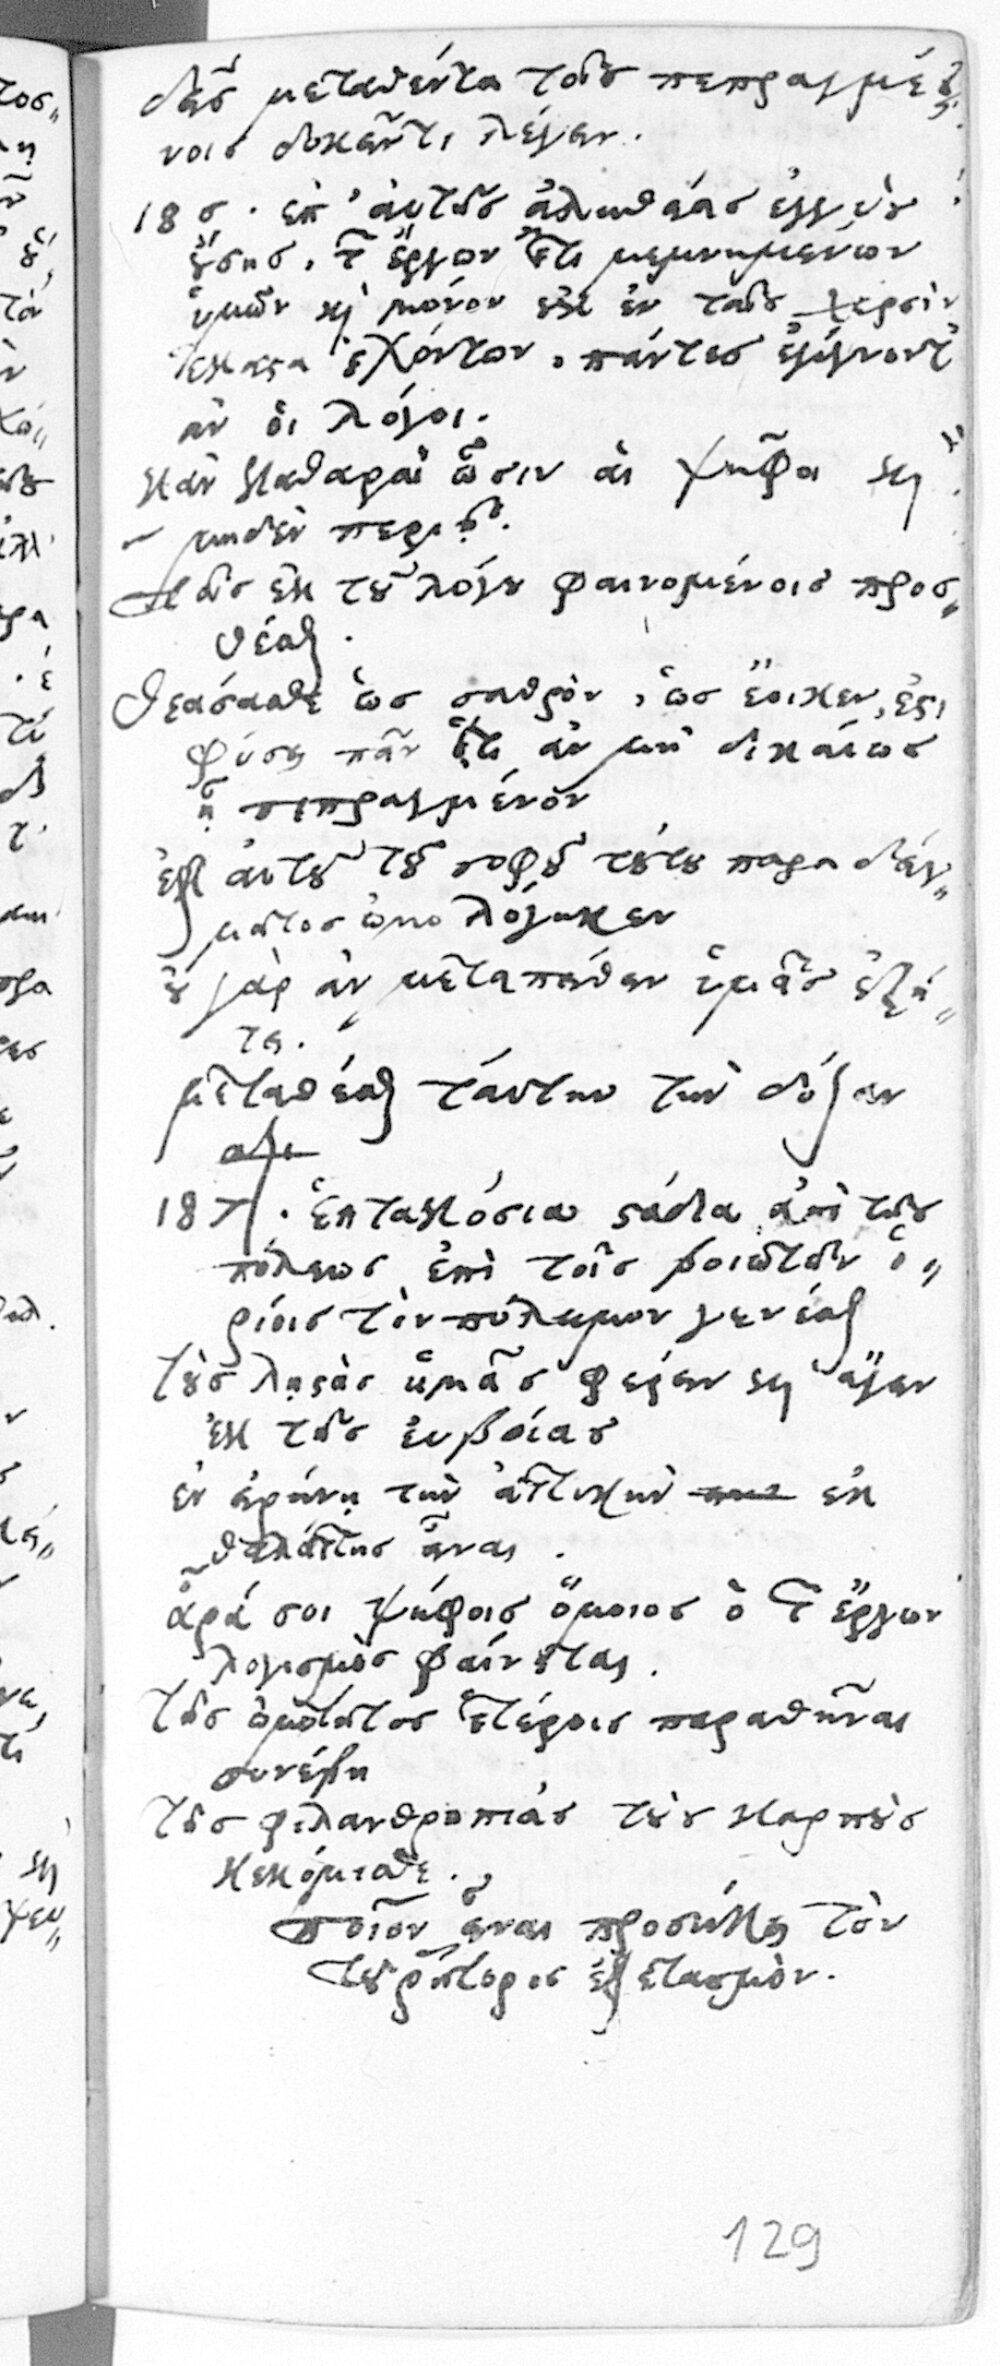 δας μεταθέντα τοῖς πεπραγμέ
νοις δοκεῖν τι λέγειν.
186. ἐπ' αὐτῆς ἀληθείας ἐγγὺς
οὔσης, τ ἔργων ἔτι μεμνημένων
ὑμῶν κὶ μόνον οὐκ ἐν ταῖς χερσὶν
ἕκαστα ἐχόντων, πάντες ἐγίγνοντ'
ἂν οἱ λόγοι.
κἂν καθαραὶ ὦσιν αἱ ψῆφοι κὶ
μηδὲν περιῇ.
τοῖς ἐκ τοῦ λόγου φαινομένοις προσ„
θέσθαι.
θεάσασθε ὡς σαθρὸν, ὡς ἔοικεν, ἐστι
φύσει πᾶν ὅτι ἂν μὴ δικαίως
ᾖ πεπραγμένον
ἐκ αὐτοῦ τοῦ σοφοῦ τούτου παραδείγ„
ματος ὡμολόγηκεν
οὐ γὰρ ἂν μεταπείθειν ὑμᾶς ἐζή„
τει.
μεταθέσθαι ταύτην τὴν δόξαν
187. ἑπτακόσια στάδια ἀπὸ τῆς
πόλεως ἐπὶ τοῖς βοιωτῶν ὁ„
ρίοις τὸν πόλεμον γενέσθαι
τοὺς λῃστὰς ὑμᾶς φέρειν κὶ ἄγειν
ἐκ τῆς εὐβοίας
ἐν εἰρήνῃ τὴν ἀττικὴν ἐκ
θαλάττης εἶναι.
ἆρά σοι ψήφοις ὅμοιος ὁ τ ἔργων
λογισμὸς φαίνεται.
τῆς ὠμότητος ἑτέροις πειραθῆναι
συνέβη
τῆς φιλανθρωπίας τοὺς καρποὺς
κεκόμισθε.
ποῖον εἶναι προσήκει τὸν
τοῦ ῥήτορος ἐξετασμὸν.
129